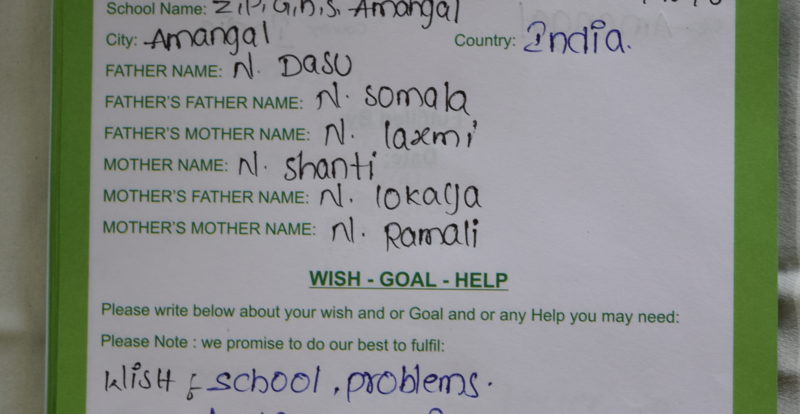 School Name: Z.P.G.H.S, Amangal
City: Amangal Country: India.
FATHER NAME: N. DASU
FATHER'S FATHER NAME: N. somala
FATHER'S MOTHER NAME: N. laxmi
MOTHER NAME: N. Shanti
MOTHER'S FATHER NAME: N. lokaya
MOTHER'S MOTHER NAME: N. Ramali
WISH - GOAL - HELP
Please write below about your wish and or Goal and or any Help you may need:
Please Note : we promise to do our best to fulfil:
WisH : school, problems.